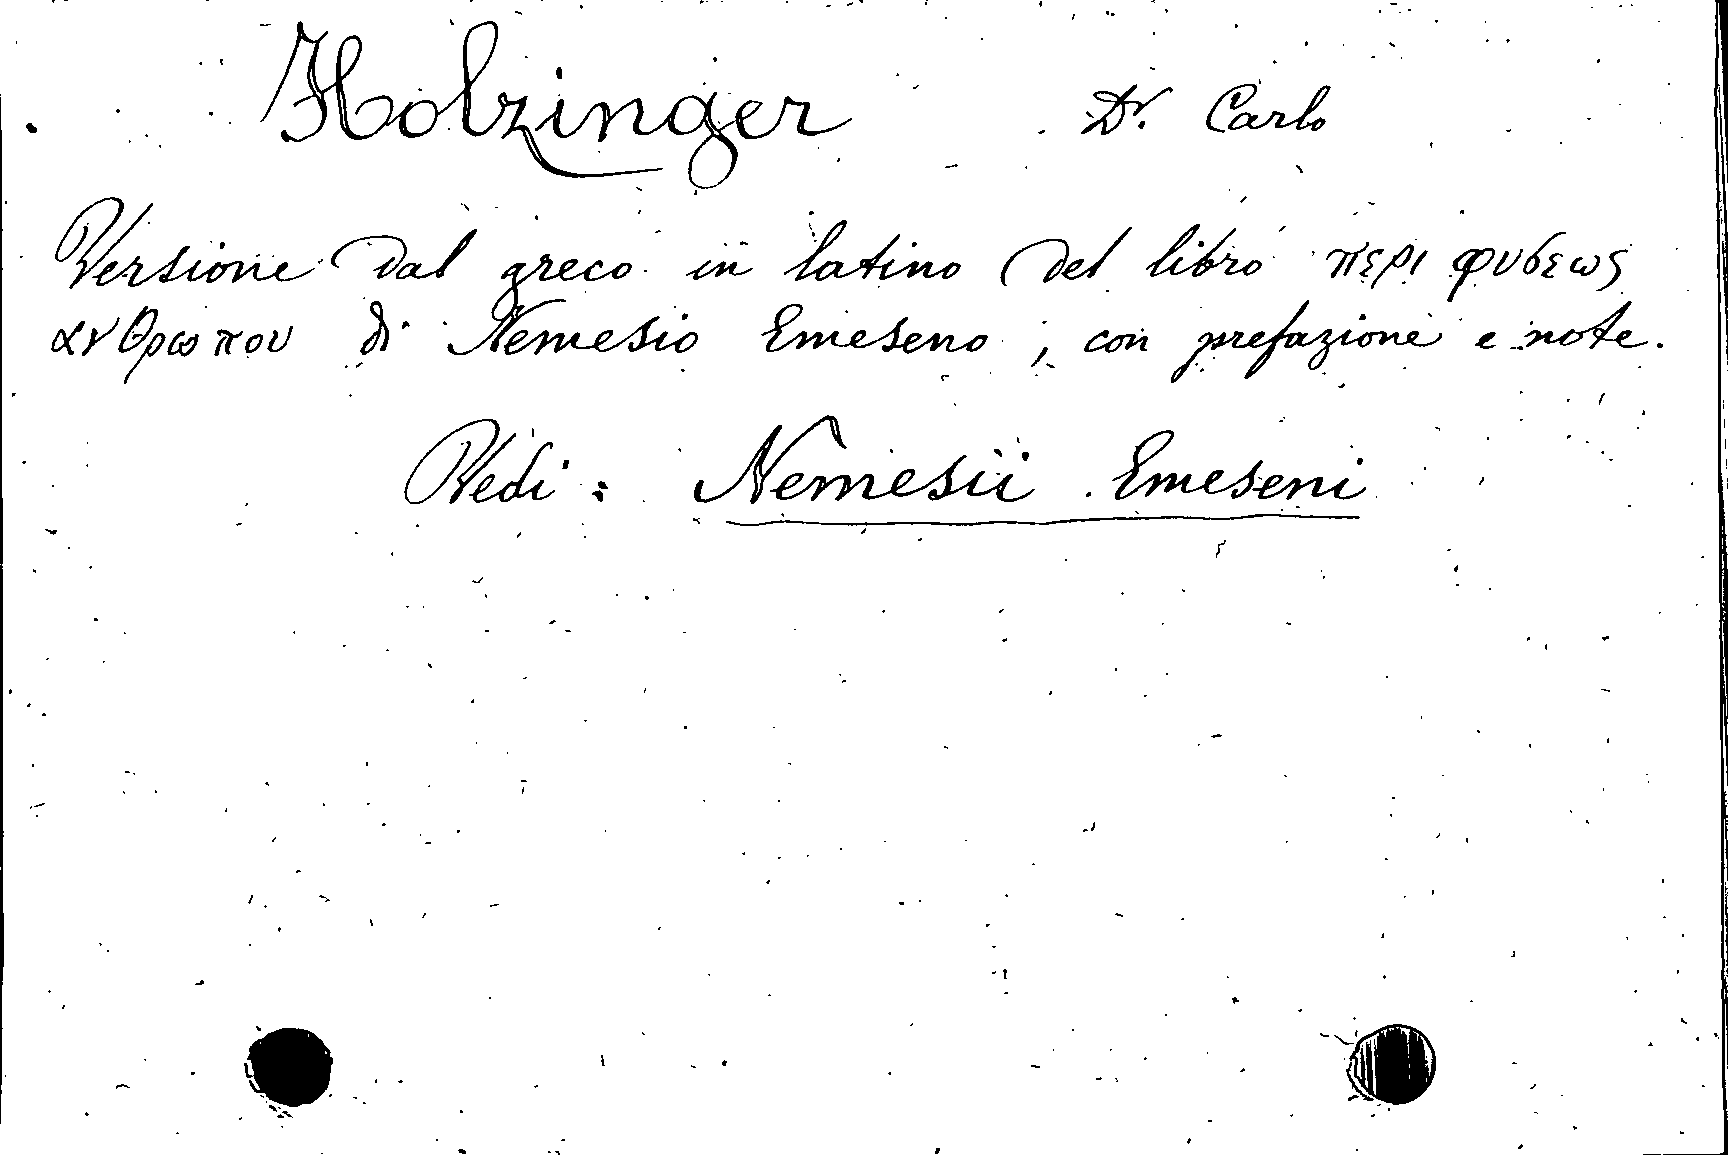 Holzinger Dr. Carlo
Versione dal greco in latino del libro περι φυσεως
ανθρωπου di Nemesio Emeseno, con prefazione e note.
Vedi: Nemesii Emeseni